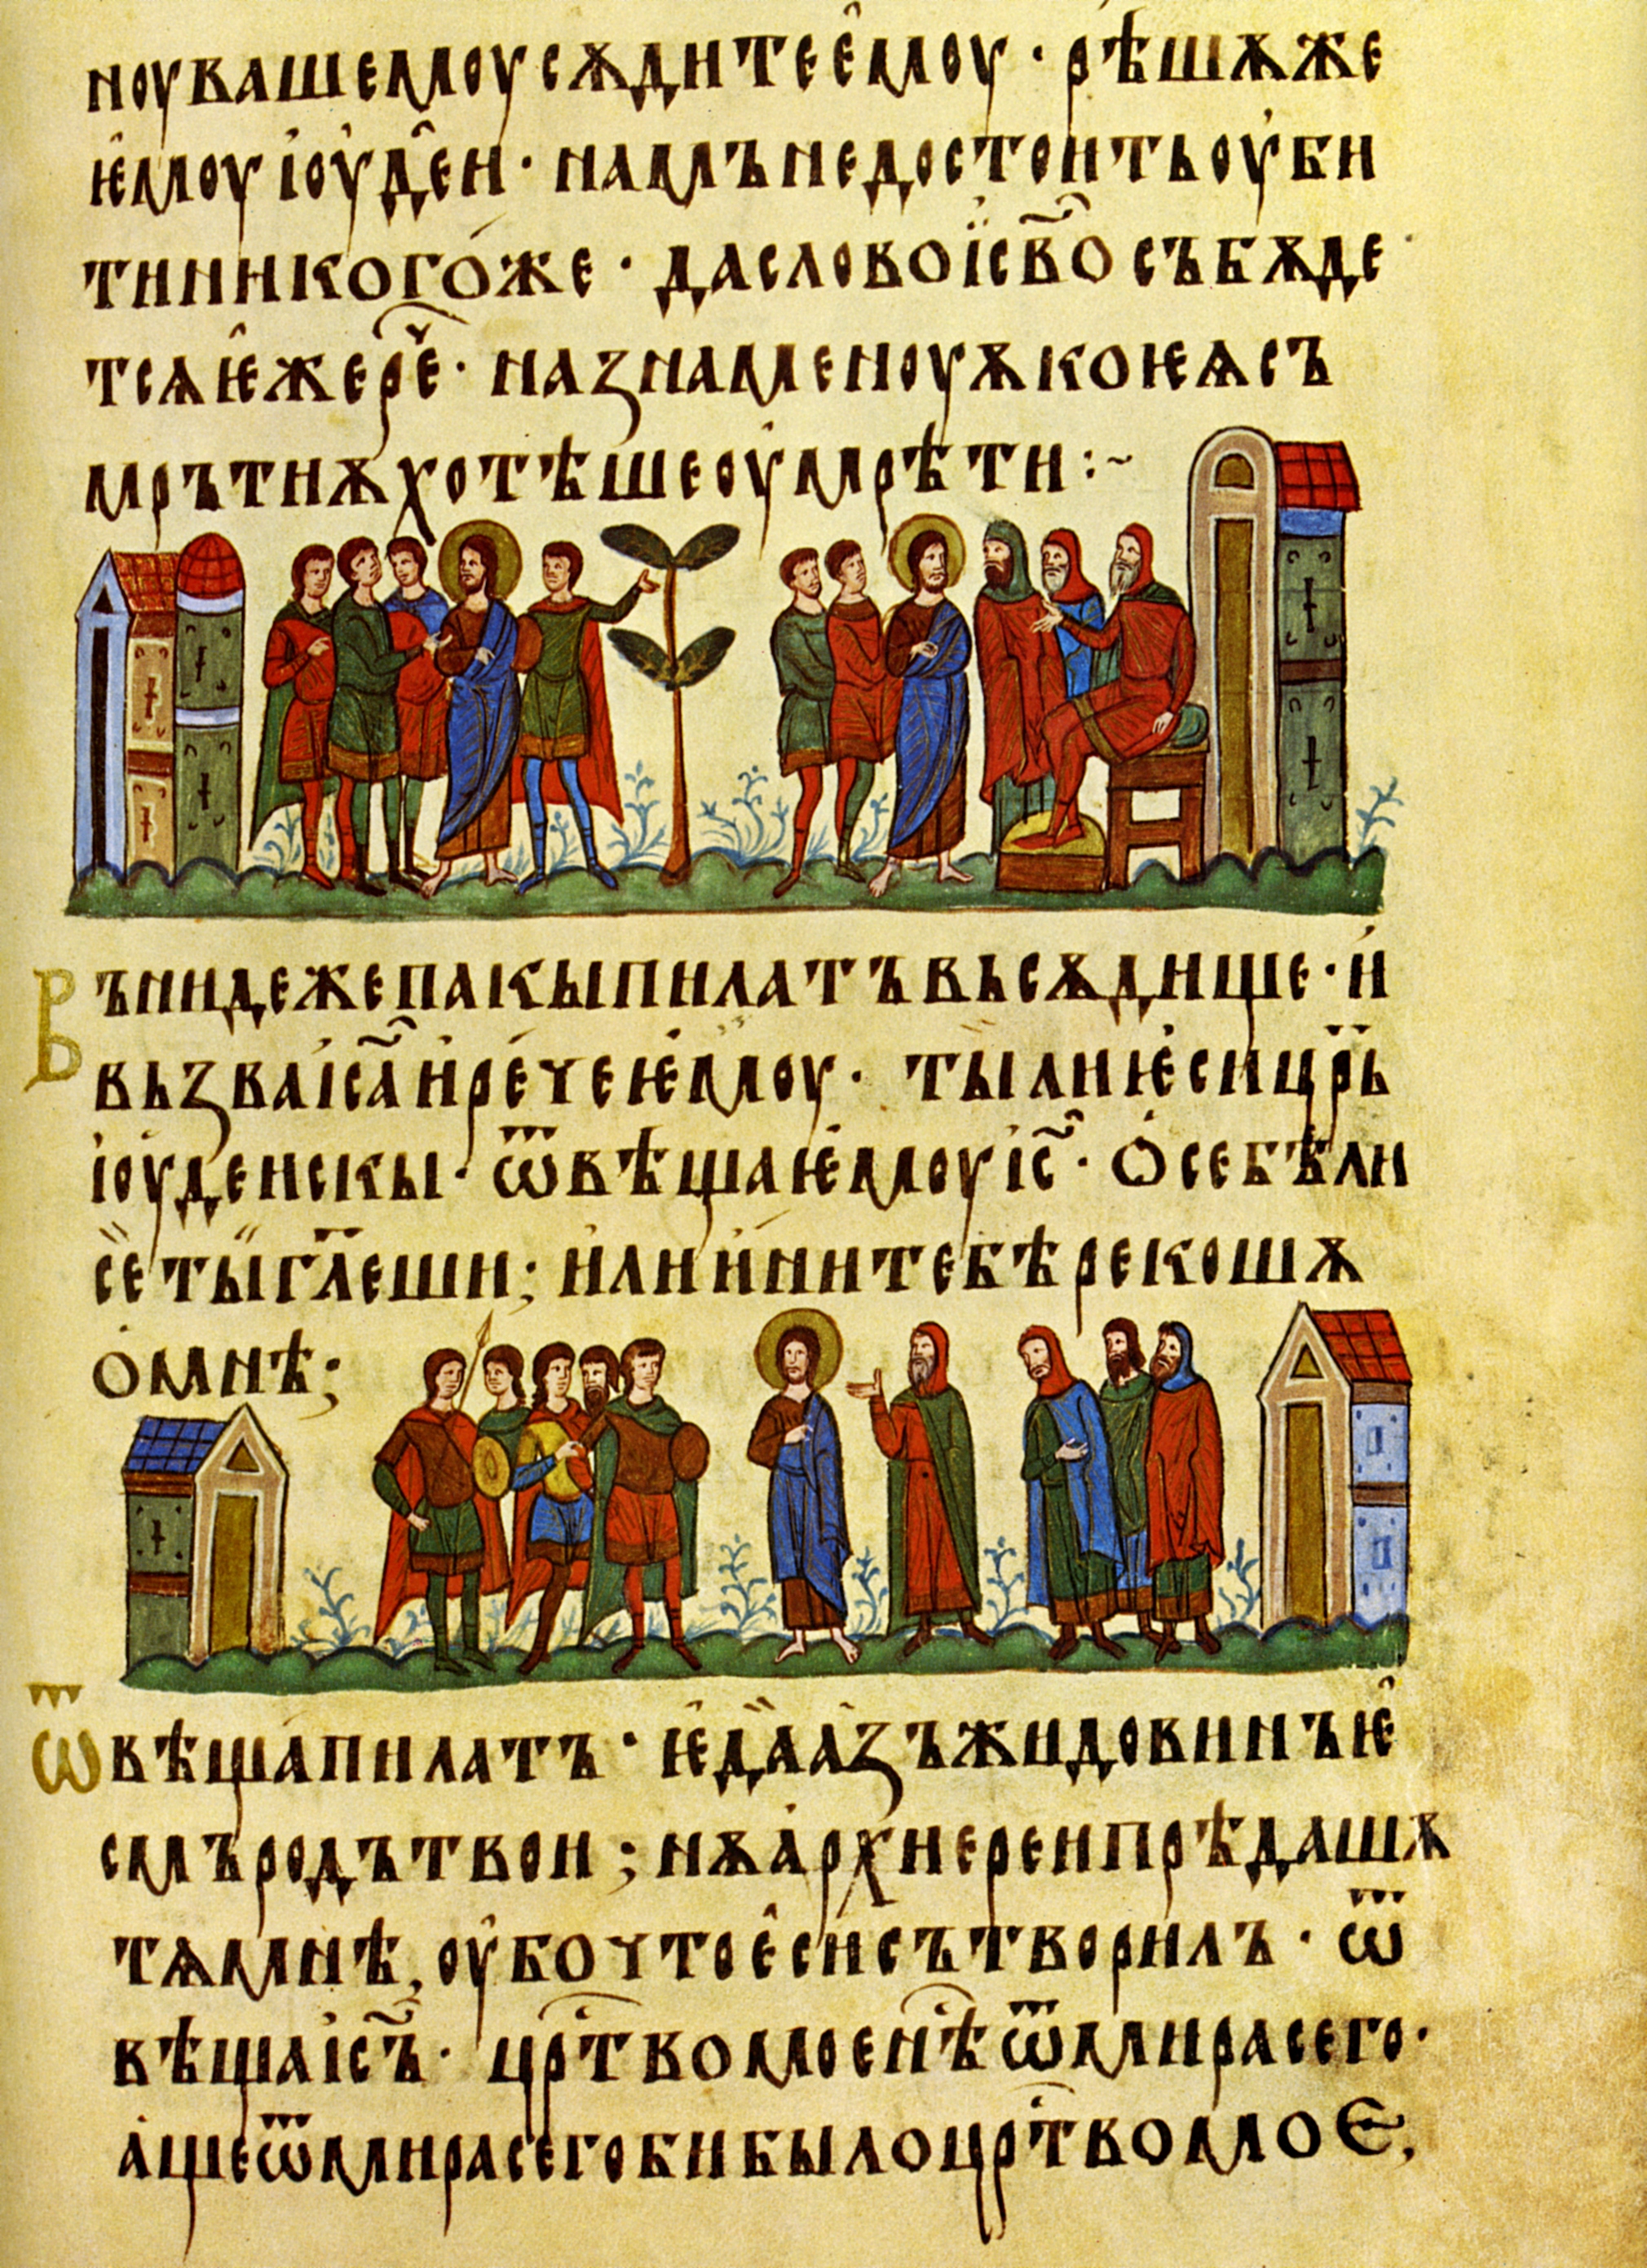 ноу вашемоу сѫдите е҆моу · рѣшѫ же
ѥ҆моу і҆оу҆де҆и · намъ не достоитъ оу҆би
ти никого́же · да слово і҆св҃о събѫде
тсѧ ѥ҆же рⷱ҇е · назнаменоуѫ коѥѧ съ
мрътиѫ хотѣше оу҆мрѣти :~
Въниде же пакы пилатъ вь сѫдище · и҆
вьзва і҆са҃ и҆ ре́че ѥ҆моу · ты ли ѥ҆си цр҃ь
і҆оудеискы · ѿвѣща ѥ҆моу і҆с҃ · ѻ҆ себѣ ли
се ты гл҃еши ; и҆ли и҆ни тебѣ рекошѫ
ѻ҆ мнѣ ;
Ѿвѣща пилатъ · ѥ҆да а҆зъ жидовинъ ѥ҆
смъ родъ твои ; нѫ а҆рхиереи прѣдашѫ
тѧ мнѣ, оу҆бо что е҆си сътворилъ · ѿ
вѣща і҆съ҃ · цр҃тво мое нѣ ѿ мира сего ·
а҆ще ѿ мира сего би было цр҃тво моє,